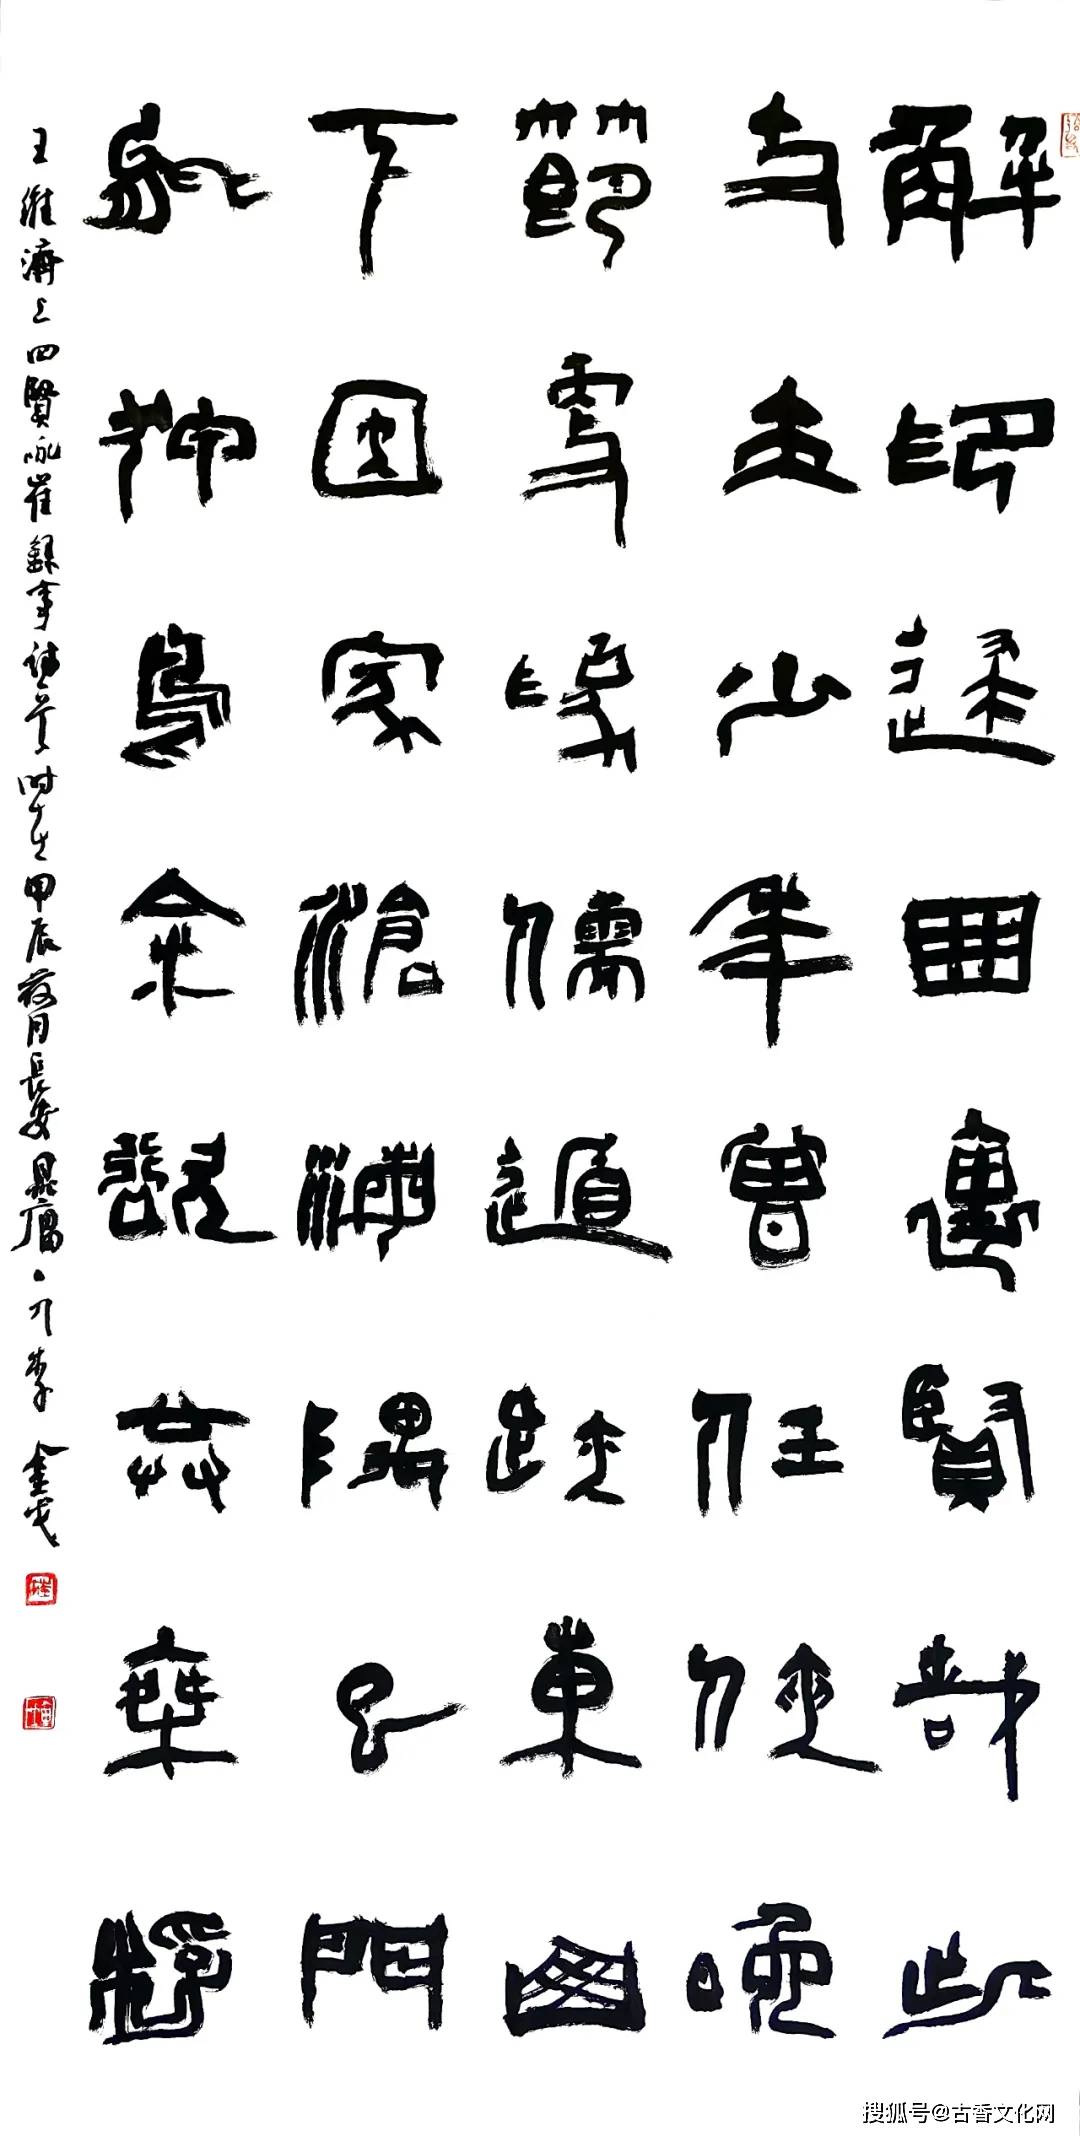 解印歸田裏賢哉此
丈夫少年曾任俠晚
節更為儒遁跡東山
下因家滄海隅已聞
能狎鳥余欲共乘桴
王維濟上四賢詠崔錄事詩一首時在甲辰荷月長安
搜狐号@古香文化网